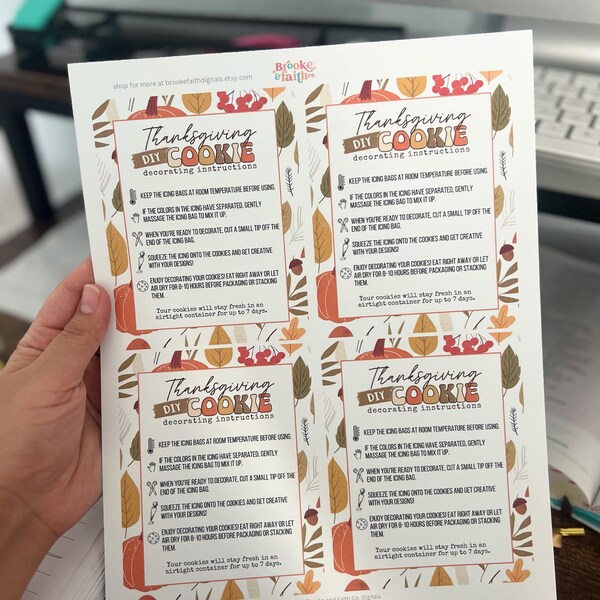 shop for more at brookefaithdigitals.etsy.com
Brooke
& faith co.
Thanksgiving
DIY COOKIE
decorating instructions
KEEP THE ICING BAGS AT ROOM TEMPERATURE BEFORE USING.
IF THE COLORS IN THE ICING HAVE SEPARATED, GENTLY
MASSAGE THE ICING BAG TO MIX IT UP.
WHEN YOU'RE READY TO DECORATE, CUT A SMALL TIP OFF THE
END OF THE ICING BAG.
SQUEEZE THE ICING ONTO THE COOKIES AND GET CREATIVE
WITH YOUR DESIGNS!
ENJOY DECORATING YOUR COOKIES! EAT RIGHT AWAY OR LET
AIR DRY FOR 8-10 HOURS BEFORE PACKAGING OR STACKING
THEM.
Your cookies will stay fresh in an
airtight container for up to 7 days.
Thanksgiving
DIY COOKIE
decorating instructions
KEEP THE ICING BAGS AT ROOM TEMPERATURE BEFORE USING.
IF THE COLORS IN THE ICING HAVE SEPARATED, GENTLY
MASSAGE THE ICING BAG TO MIX IT UP.
WHEN YOU'RE READY TO DECORATE, CUT A SMALL TIP OFF THE
END OF THE ICING BAG.
SQUEEZE THE ICING ONTO THE COOKIES AND GET CREATIVE
WITH YOUR DESIGNS!
ENJOY DECORATING YOUR COOKIES! EAT RIGHT AWAY OR LET
AIR DRY FOR 8-10 HOURS BEFORE PACKAGING OR STACKING
THEM.
Your cookies will stay fresh in an
airtight container for up to 7 days.
Thanksgiving
DIY COOKIE
decorating instructions
KEEP THE ICING BAGS AT ROOM TEMPERATURE BEFORE USING.
IF THE COLORS IN THE ICING HAVE SEPARATED, GENTLY
MASSAGE THE ICING BAG TO MIX IT UP.
WHEN YOU'RE READY TO DECORATE, CUT A SMALL TIP OFF THE
END OF THE ICING BAG.
SQUEEZE THE ICING ONTO THE COOKIES AND GET CREATIVE
WITH YOUR DESIGNS!
ENJOY DECORATING YOUR COOKIES! EAT RIGHT AWAY OR LET
AIR DRY FOR 8-10 HOURS BEFORE PACKAGING OR STACKING
THEM.
Your cookies will stay fresh in an
airtight container for up to 7 days.
Thanksgiving
DIY COOKIE
decorating instructions
KEEP THE ICING BAGS AT ROOM TEMPERATURE BEFORE USING.
IF THE COLORS IN THE ICING HAVE SEPARATED, GENTLY
MASSAGE THE ICING BAG TO MIX IT UP.
WHEN YOU'RE READY TO DECORATE, CUT A SMALL TIP OFF THE
END OF THE ICING BAG.
SQUEEZE THE ICING ONTO THE COOKIES AND GET CREATIVE
WITH YOUR DESIGNS!
ENJOY DECORATING YOUR COOKIES! EAT RIGHT AWAY OR LET
AIR DRY FOR 8-10 HOURS BEFORE PACKAGING OR STACKING
THEM.
Your cookies will stay fresh in an
airtight container for up to 7 days.
and Faith Co. Digitals